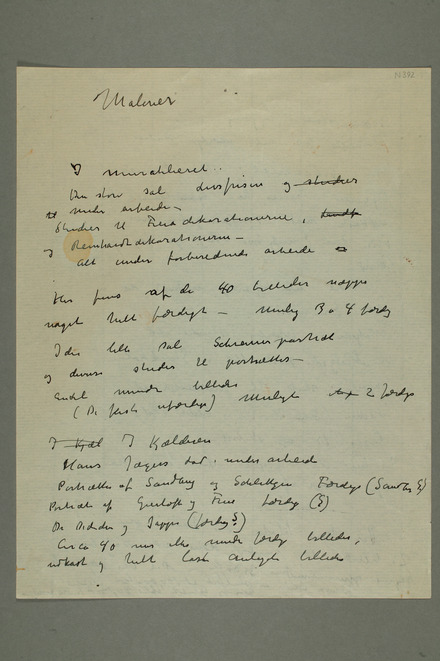 N 392
Malerier
I murateliéret
Den store sal livsfrisen og studier
til under arbeide –
Studier til Freia dekorationerne,
og Reinhardtdekorationerne –
alt under forberedende arbeide
Her fins af de 40 billeder næppe
noget helt færdigt – Mulig 3 a 4 færdig
I den lille sal Schreiner portræt
og diverse studier til portrætter –
Endel mindre billeder
(De fleste ufærdige) Muligt 2 færdige
I Kjæl I Kjælderen
Hans Jægers død under arbeide
Portrætter af Sandberg og Schlittgen Færdige (Sandberg ?)
Portræt af og færdig (?)
De og Jappe (færdig ?)
Circa 40 mer eller mindre færdige billeder,
udkast og helt løst antydede billeder